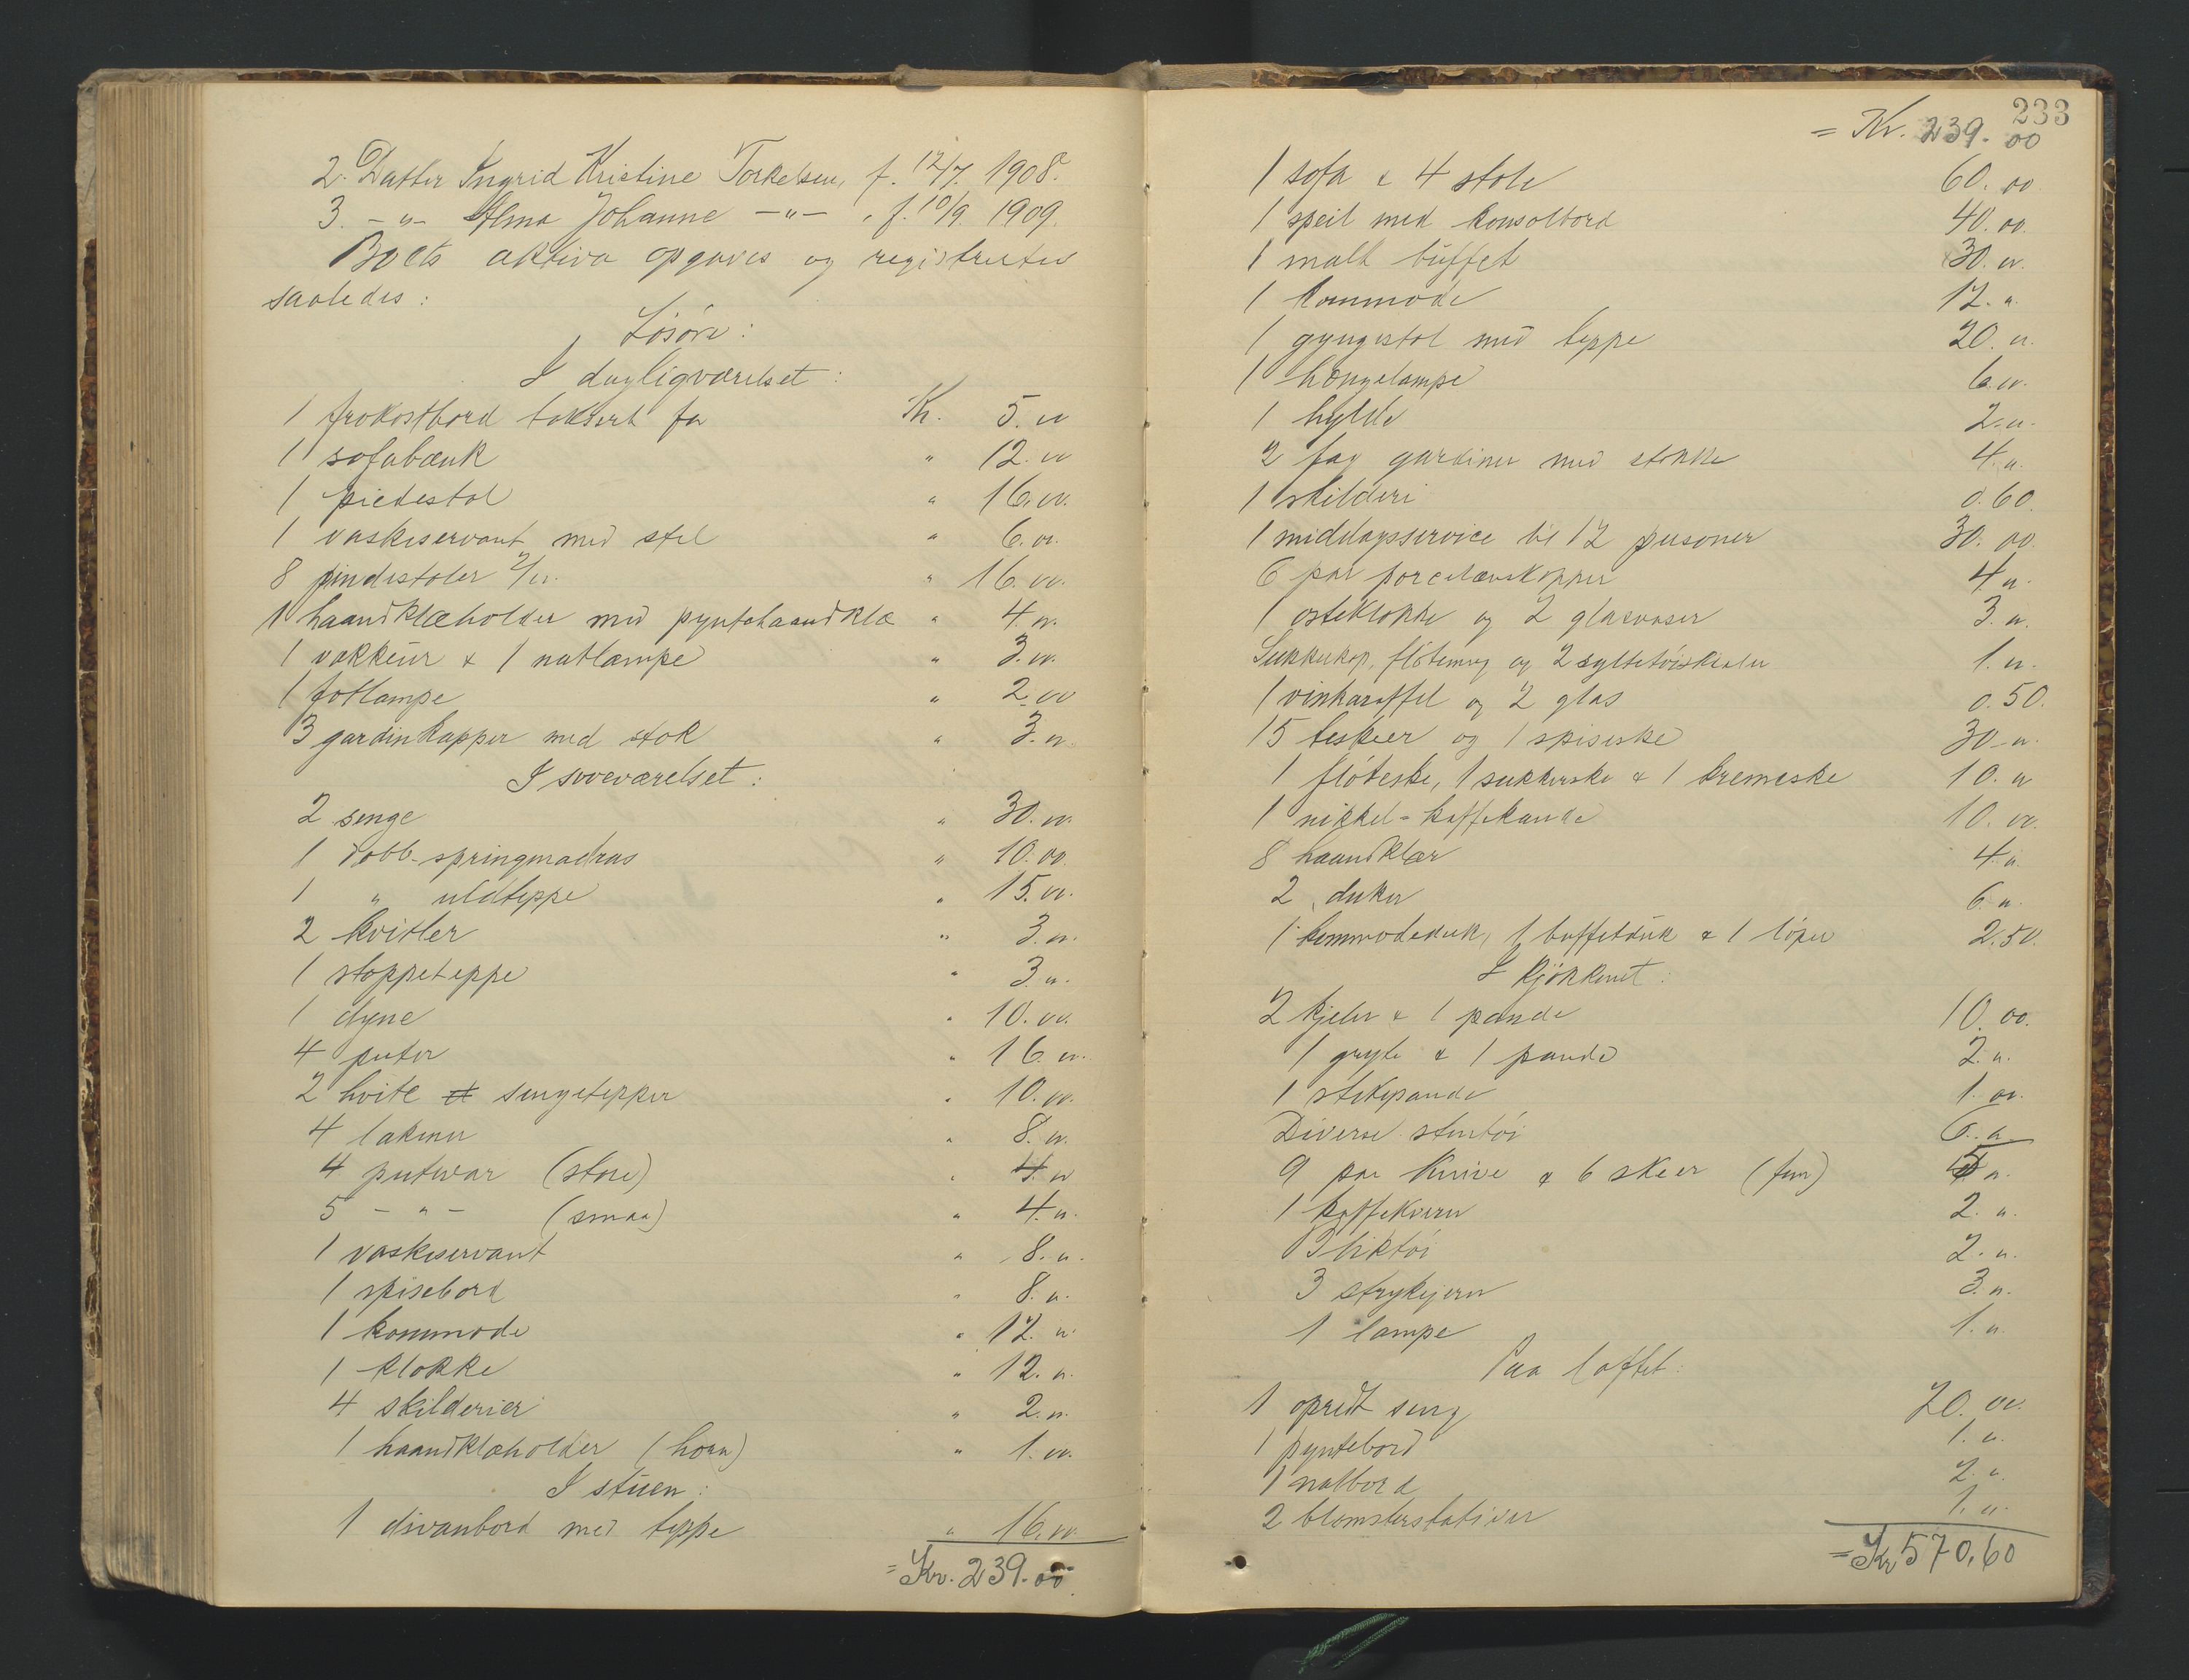 2. Datter Ingrid Kristine Torkelsen, f. 12/7. 1908.
3. -"- Alma Johanne -"- , f. 10/9. 1909.
Boets aktiva opgaves og registrertes
saaledes:
Løsøre:
I dagligværelset:
1 frokostbord taksert for Kr. 5.00
1 sofabænk " 12.00
1 piedestal " 16.00.
1 vaskeservant med stel " 6.00.
8 pindestoler 2/00. " 16.00.
1 haandklæholder med pyntehaandklæ " 4.00.
1 vækkeur & 1 natlampe " 3.00.
1 fotlampe " 2.00
3 gardinkapper med stok " 3.00.
I soveværelset:
2 senge " 30.00.
1 dobb. springmadras " 10.00.
1 " uldteppe " 15.00.
2 kvitler " 3.00.
1 stoppeteppe " 3.00.
1 dyne " 10.00.
4 puter " 16.00.
2 hvite sengetepper " 10.00.
4 lakener " 8.00.
4 putevar (store) " 4.00
5 - " - (smaa) " 4.00.
1 vaskeservant " 8.00.
1 spisebord " 8.00.
1 kommode " 12.00
1 klokke " 12.00.
4 skilderier " 2.00.
1 haandklæholder (horn) " 1.00.
I stuen:
1 divanbord med teppe " 16.00
= Kr. 239.00.
233
= Kr. 239.00
1 sofa & 4 stole 60.00
1 speil med konsolbord 40.00.
1 malt buffet 30.00.
1 kommode 12.00.
1 gyngestol med teppe 20.00.
1 hængelampe 6.00.
1 hylde 2.00.
2 fag gardiner med stokke 4.00.
1 skilderi 0.60.
1 middagsservice til 12 personer 30.00.
6 par porcelænskopper 4.00.
1 osteklokke og 2 glasvaser 3.00.
Sukkerkop, fløtemug og 2 syltetøiskaaler 1.00.
1 vinkaraffel og 2 glas 0.50.
15 teskeer og 1 spiseske 30.00.
1 fløteske, 1 sukkerske & 1 kremeske 10.00
1 nikkel-kaffekande 10.00.
8 haandklær 4.00.
2 duker 6.00.
1 kommodeduk, 1 buffetduk & 1 løper 2.50.
I kjøkkenet:
2 kjeler & 1 pande 10.00.
1 gryte & 1 pande 2.00.
1 stekepande 1.00.
Diverse stentøi 6.00.
9 par knive & 6 skeer 5.00.
1 kaffekvern 2.00.
Bliktøi 2.00.
3 strykejern 3.00.
1 lampe 1.00.
Paa loftet:
1 opredt seng 20.00.
1 pyntebord 1.00.
1 natbord 2.00.
2 blomsterstativer 1.00.
= Kr 570,60